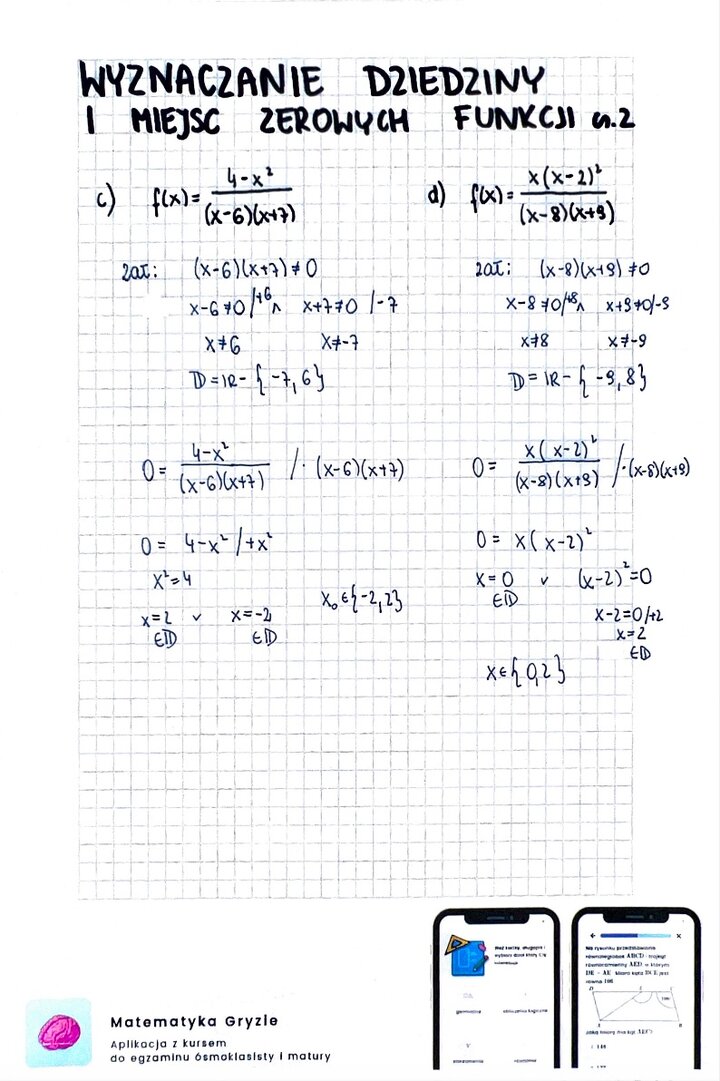 WYZNACZANIE DZIEDZINY
I MIEJSC ZEROWYCH FUNKCJI cz.2
c) f(x)= \frac{4-x²}{(x-6)(x+7)}
zał: (x-6)(x+7)≠0
x-6≠0/+6 ∧ x+7≠0 /-7
x≠6 x≠-7
D=IR-{-7,6}
0= \frac{4-x²}{(x-6)(x+7)} /·(x-6)(x+7)
0= 4-x² /+x²
x²=4
x=2 ∨ x=-2
∈D ∈D
x₀∈{-2,2}
d) f(x)= \frac{x(x-2)²}{(x-8)(x+9)}
zał: (x-8)(x+9)≠0
x-8≠0/+8 ∧ x+9≠0/-9
x≠8 x≠-9
D=IR-{-9,8}
0= \frac{x(x-2)²}{(x-8)(x+9)} /·(x-8)(x+9)
0= x(x-2)²
x=0 ∨ (x-2)²=0
∈D
x-2=0/+2
x=2
∈D
x∈{0,2}
Matematyka Gryzie
Aplikacja z kursem
do egzaminu ósmoklasisty i matury
Na rysunku przedstawiono
równoległobok ABCD i trójkąt
równoramienny AED, w którym